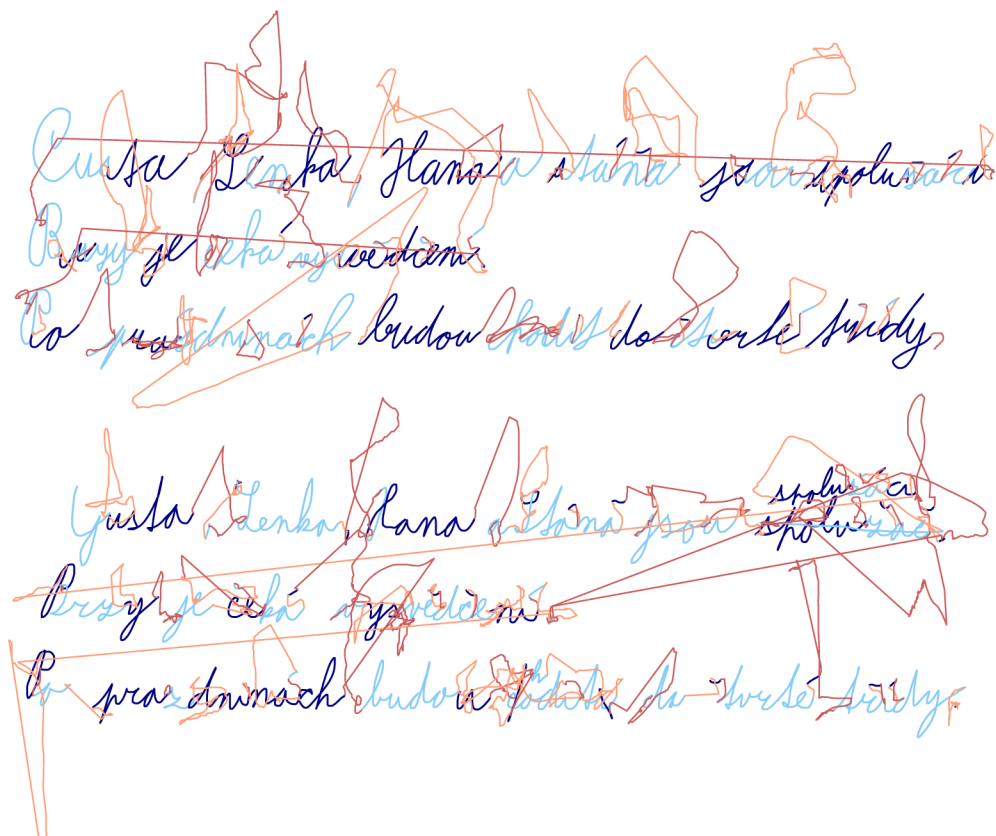 Gusta, Lenka, Hana a Stáňa jsou spolužáci.
Brzy je čeká vysvědčení.
Po prázdninách budou chodit do čtvrté třídy.
Gusta, Lenka, Hana a Stáňa jsou spolužáci
spolužáci.
Brzy je čeká vysvědčení.
Po prázdninách budou chodit do čtvrté třídy.